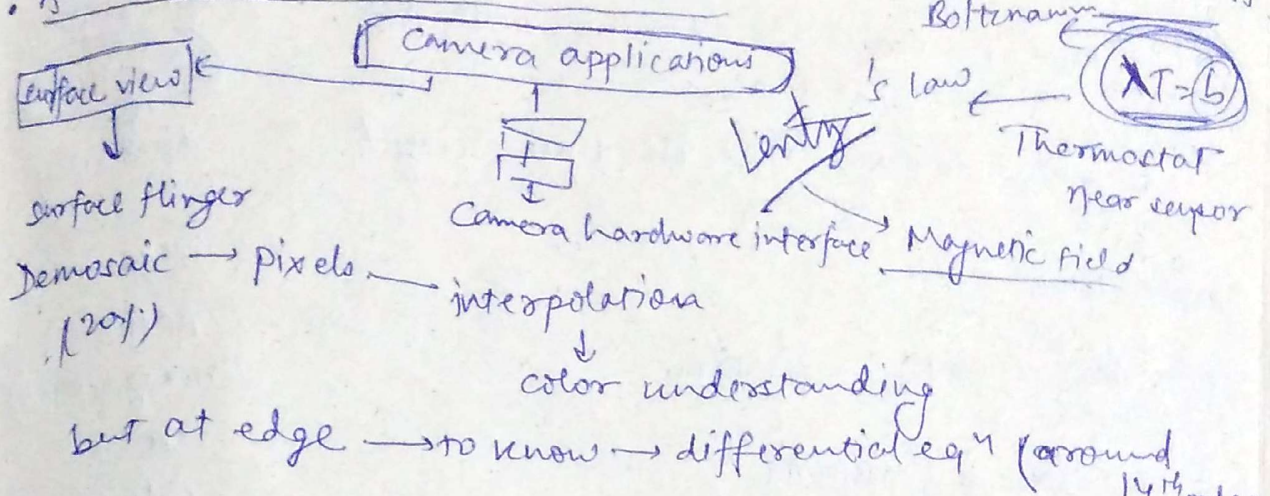 Boltzmann
Camera applications
surface view
's law
λT = b
Thermostat
near sensor
surface flinger
Camera hardware interface
Magnetic field
Demosaic → pixels
interpolation
(20%)
color understanding
but at edge → to know → differential eqⁿ (around
14th